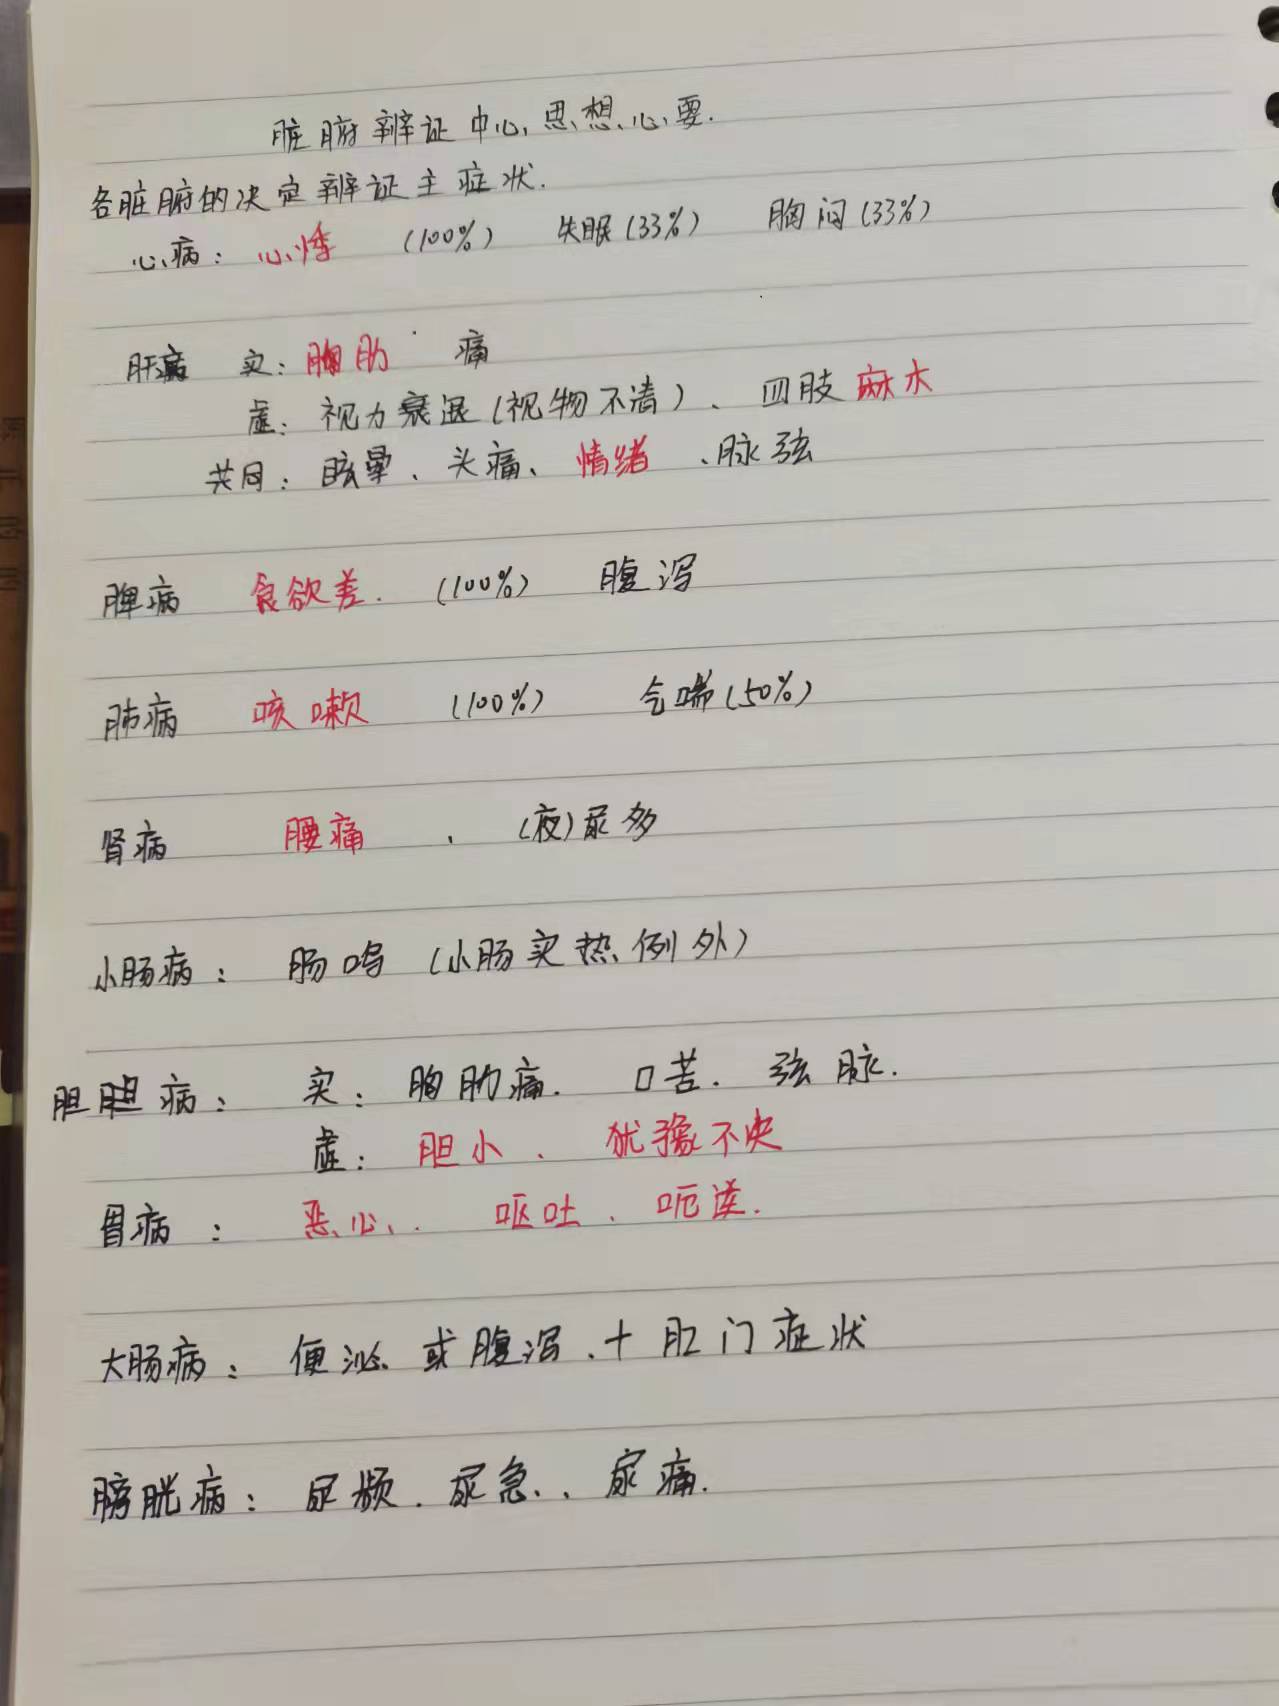 脏腑辨证中心思想心要.
各脏腑的决定辨证主症状.
心病: 心悸 (100%) 失眠(33%) 胸闷(33%)
肝病 实: 胸肋 痛
虚: 视力衰退(视物不清)、四肢麻木
共同: 眩晕、头痛、情绪、脉弦
脾病 食欲差. (100%) 腹泻
肺病 咳嗽 (100%) 气喘(50%)
肾病 腰痛 、 (夜)尿多
小肠病: 肠鸣 (小肠实热例外)
胆胆病: 实: 胸肋痛. 口苦. 弦脉.
虚: 胆小、 犹豫不决
胃病: 恶心、 呕吐、呃逆.
大肠病: 便泌或腹泻、+肛门症状
膀胱病: 尿频. 尿急、尿痛.